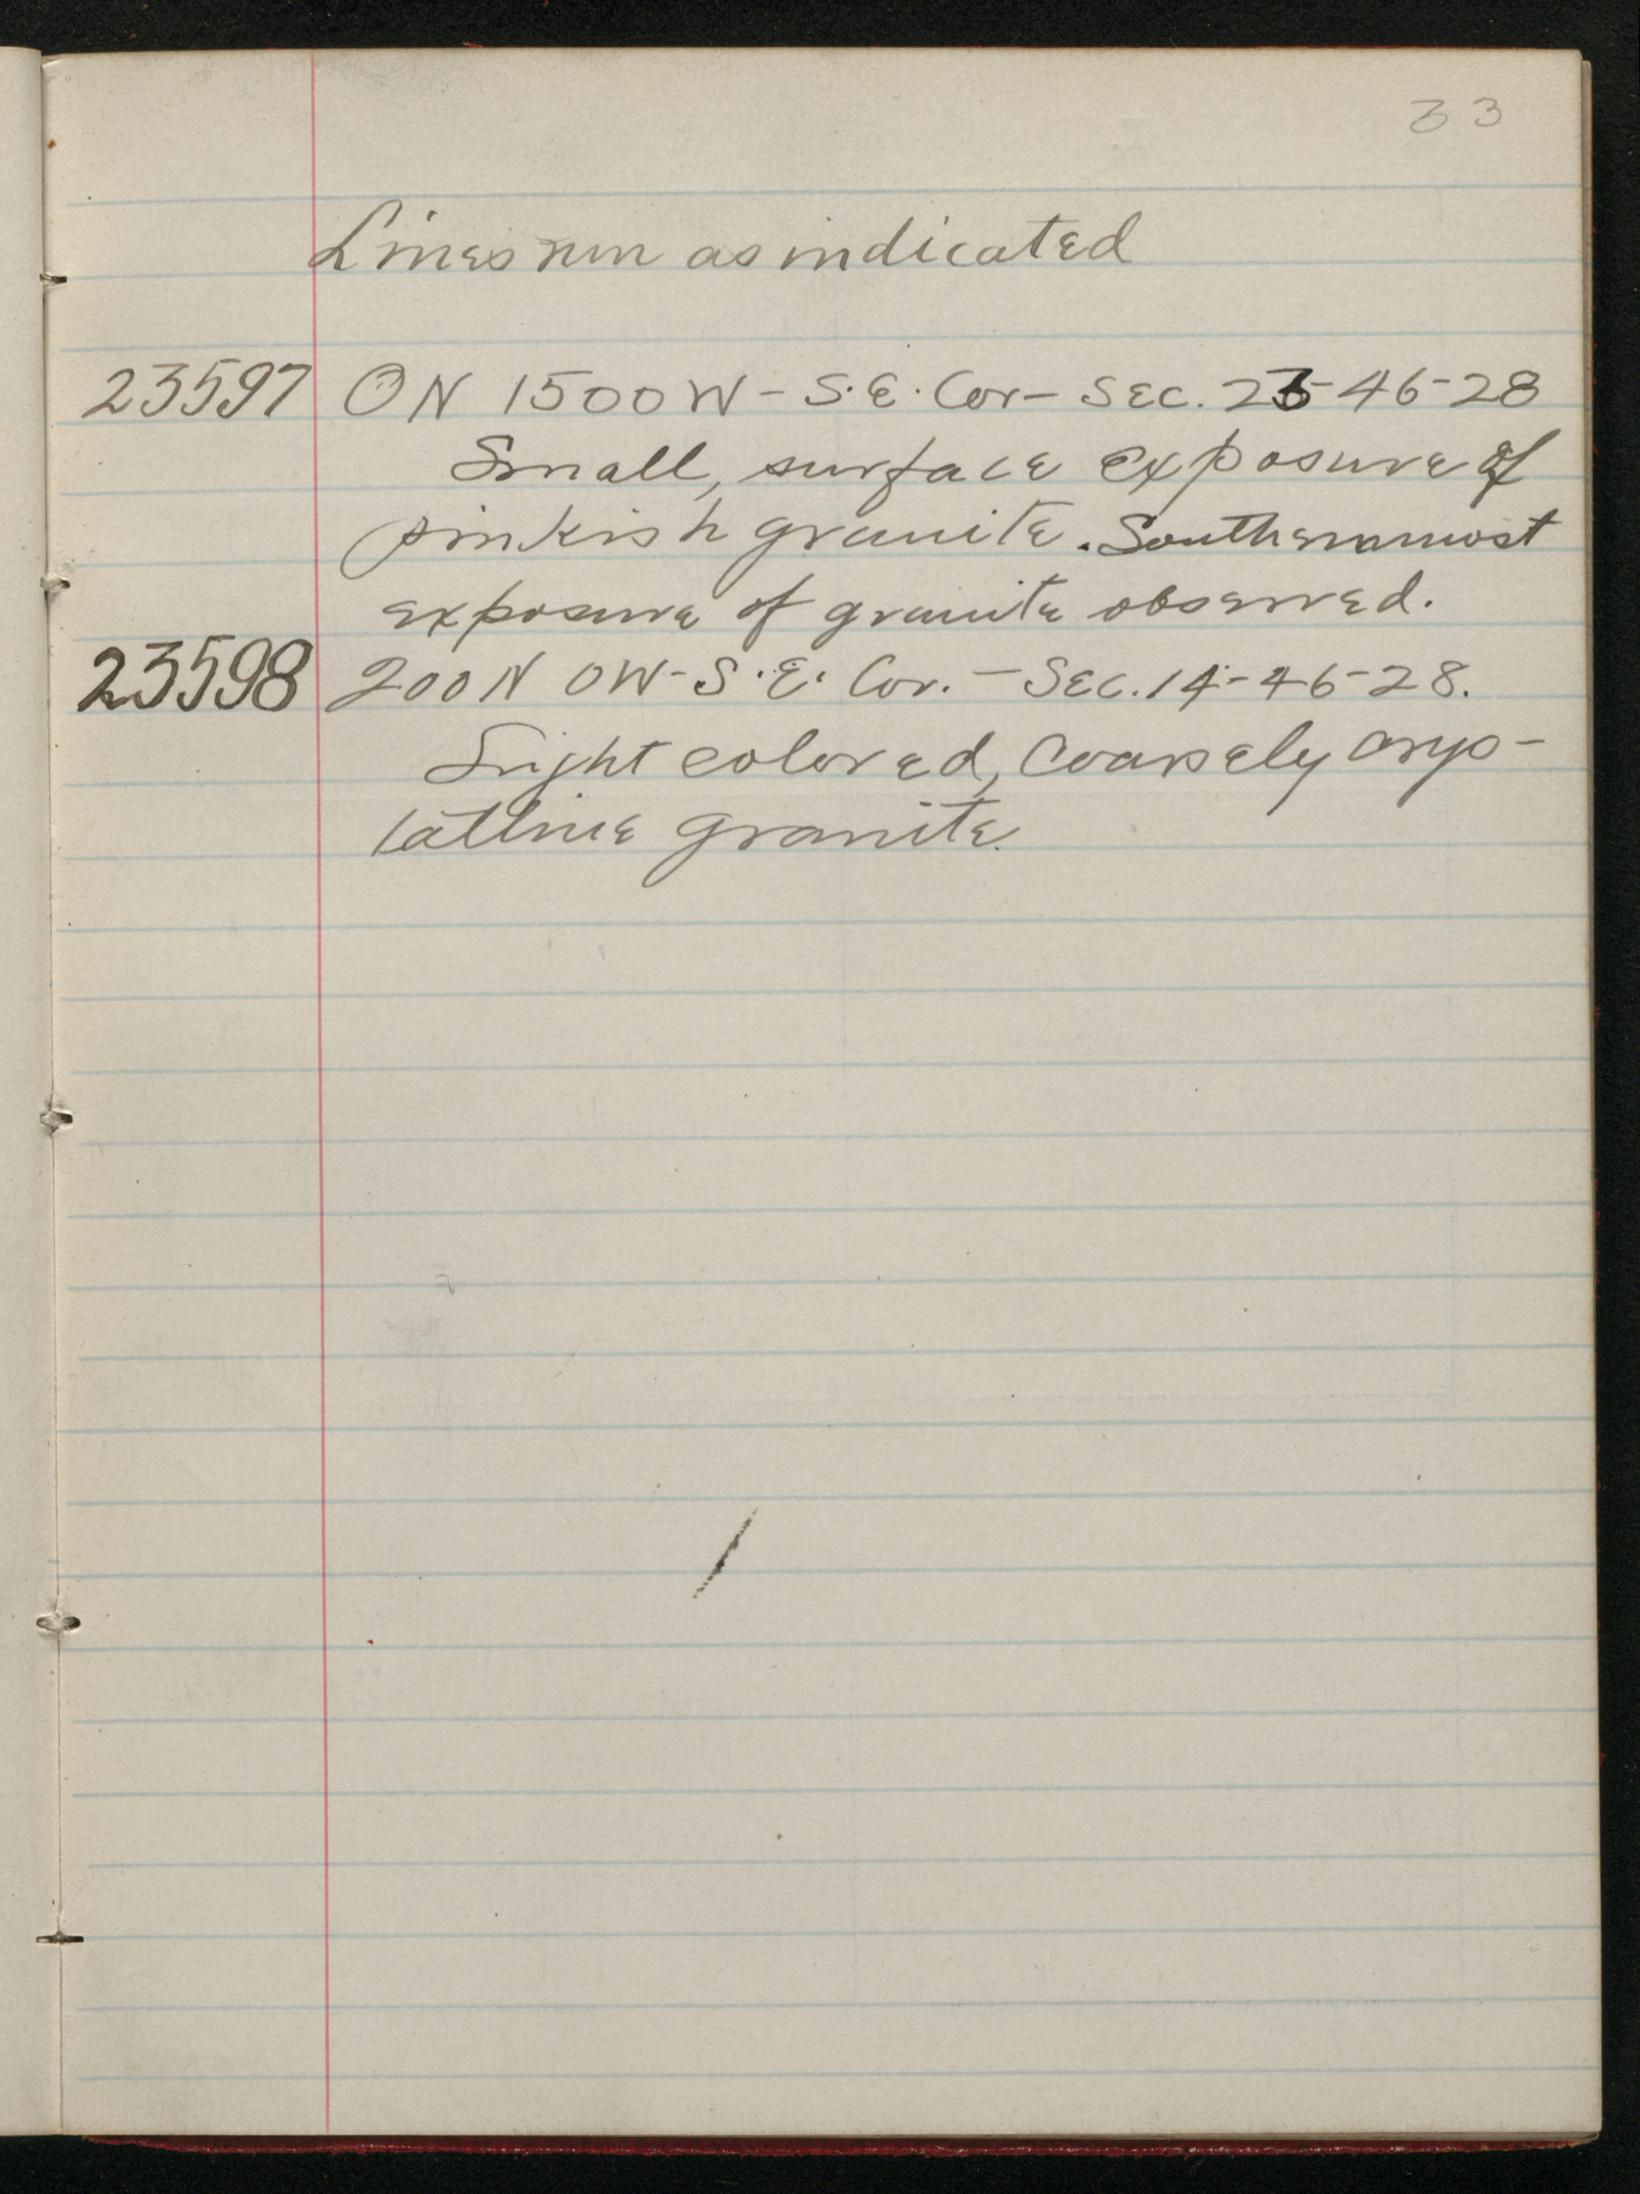 33
Lines run as indicated
23597 0N 1500W - S.E. Cor - Sec. 23-46-28
Small, surface exposure of
pinkish granite. Southernmost
exposure of granite observed.
23598 200N 0W - S.E. Cor. - Sec. 14-46-28.
Light colored, coarsely crys-
talline granite.